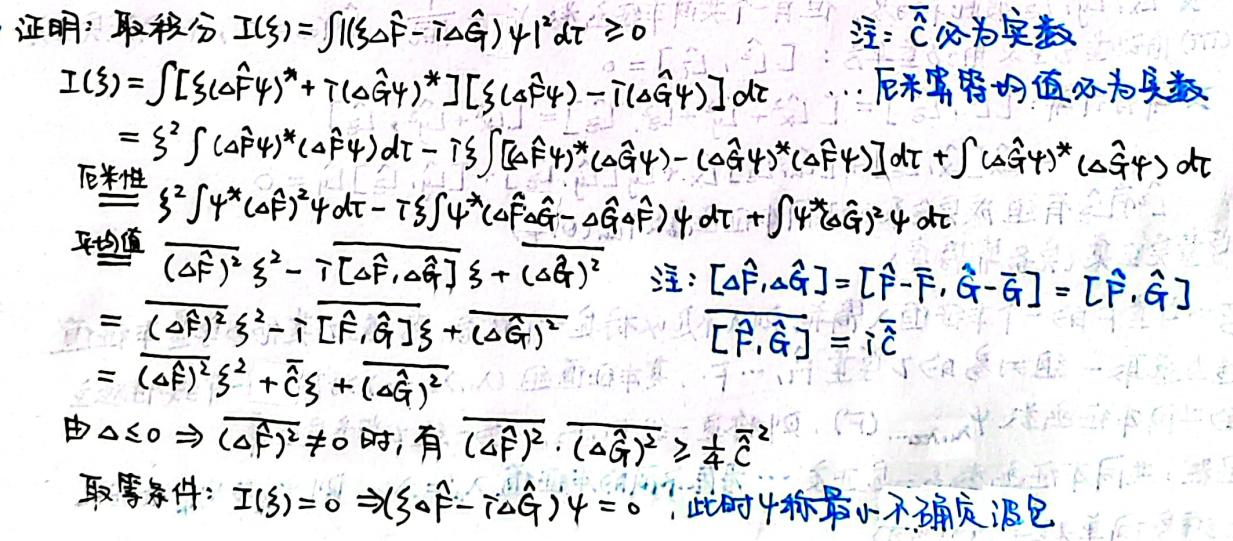 证明：取积分 I(ξ) = ∫|(ξΔF̂ - iΔĜ)ψ|²dτ ≥ 0 注：Ĉ̅ 必为实数
I(ξ) = ∫[ξ(ΔF̂ψ)* + i(ΔĜψ)*][ξ(ΔF̂ψ) - i(ΔĜψ)]dτ ∵厄米算符均值必为实数
= ξ²∫(ΔF̂ψ)*(ΔF̂ψ)dτ - iξ∫[(ΔF̂ψ)*(ΔĜψ) - (ΔĜψ)*(ΔF̂ψ)]dτ + ∫(ΔĜψ)*(ΔĜψ)dτ
厄米性 = ξ²∫ψ*(ΔF̂)²ψdτ - iξ∫ψ*(ΔF̂ΔĜ - ΔĜΔF̂)ψdτ + ∫ψ*(ΔĜ)²ψdτ
平均值 = \overline{(ΔF̂)²}ξ² - i\overline{[ΔF̂,ΔĜ]}ξ + \overline{(ΔĜ)²} 注：[ΔF̂,ΔĜ] = [F̂-F̅, Ĝ-G̅] = [F̂,Ĝ]
= \overline{(ΔF̂)²}ξ² - i\overline{[F̂,Ĝ]}ξ + \overline{(ΔĜ)²} \overline{[F̂,Ĝ]} = iĈ̅
= \overline{(ΔF̂)²}ξ² + Ĉ̅ξ + \overline{(ΔĜ)²}
由Δ≤0 ⇒ \overline{(ΔF̂)²} ≠ 0 时，有 \overline{(ΔF̂)²}·\overline{(ΔĜ)²} ≥ ¼Ĉ̅²
取等条件：I(ξ) = 0 ⇒ (ξΔF̂ - iΔĜ)ψ = 0，此时ψ称最小不确定波包